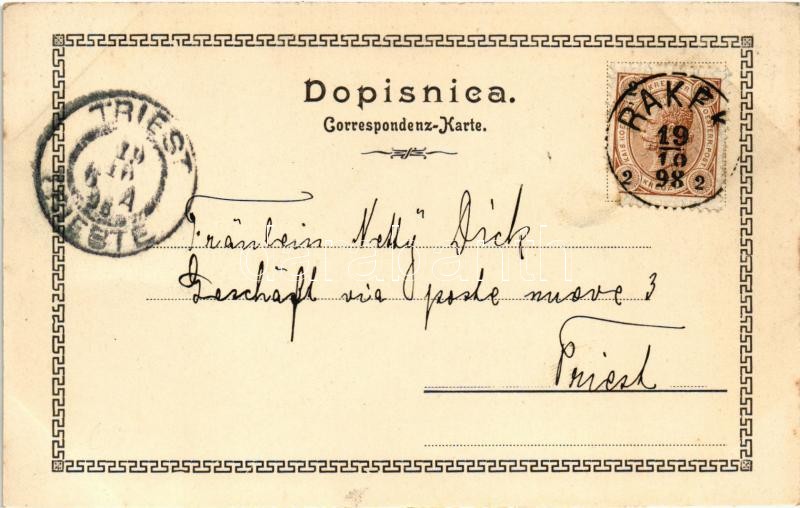 Dopisnica.
Correspondenz-Karte.
TRIEST
19
10
98
TRIESTE
RAKEK
19
10
98
2 2
Fräulein Netty Dick
Geschäft via poste nuove 3
Triest
darabanth